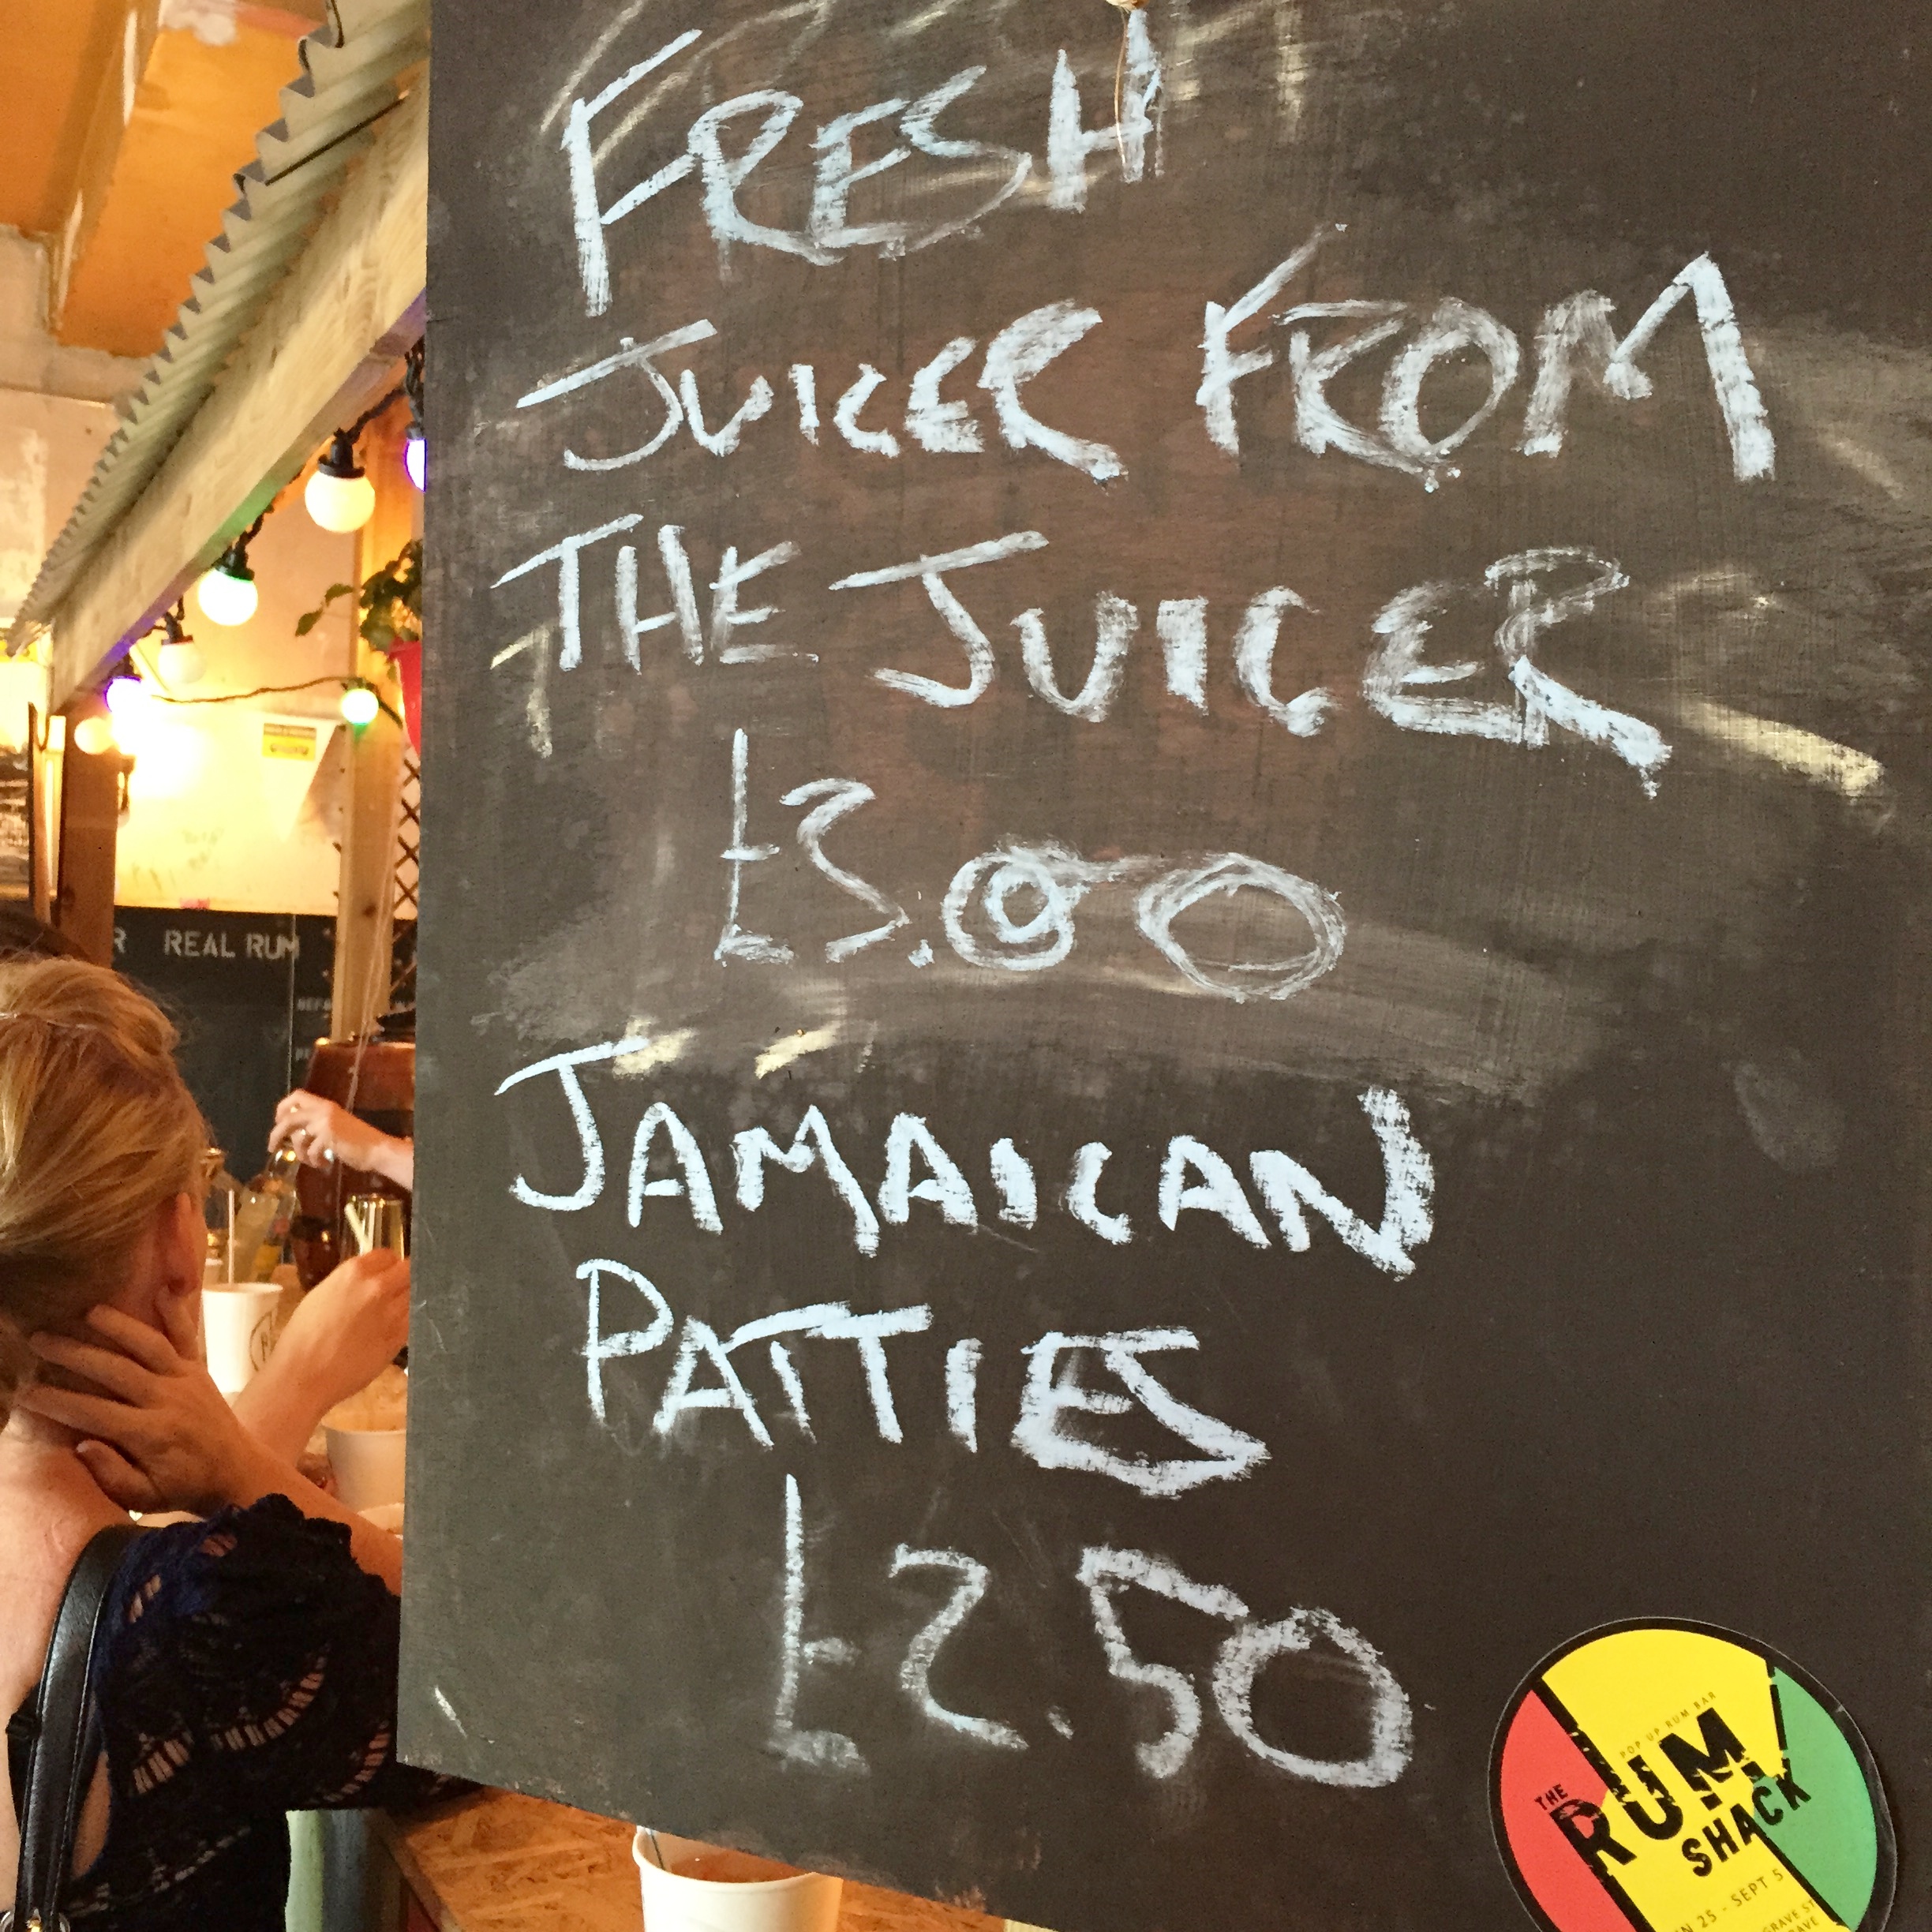 FRESH
JUICER FROM
THE JUICER
£3.00
JAMAICAN
PATTIES
£2.50
REAL RUM
POP UP RUM BAR
THE
RUM
SHACK
25 - SEPT 5